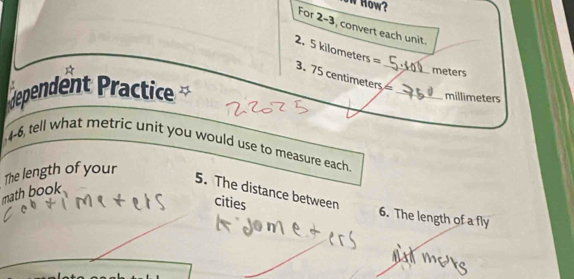 How?
For 2–3, convert each unit.
2. 5 kilometers = 5.000 meters
3. 75 centimeters = 750 millimeters
dependent Practice
22025
4–6, tell what metric unit you would use to measure each.
The length of your
math book
centimeters
5. The distance between
cities
kilometers
6. The length of a fly